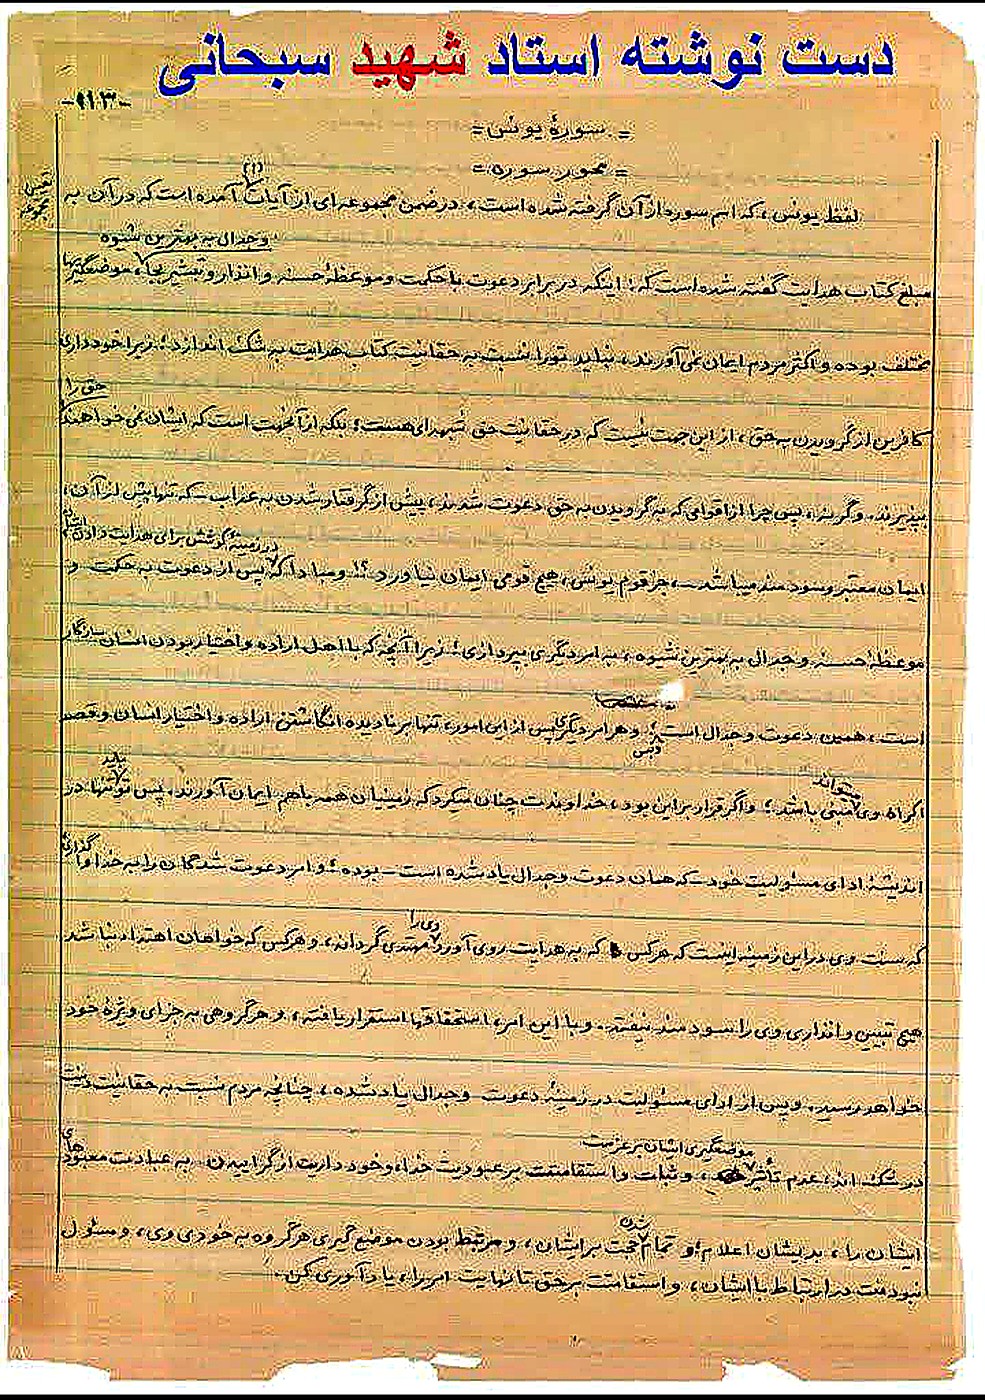 دست نوشته استاد شهید سبحانی
-۹۱۳-
= سورهٔ یونس =
= محور سوره =
(۱)
لفظ یونس، که اسم سوره از آن گرفته شده است، در ضمن مجموعه‌ای از آیات آمده است که در آن به
وجدال به بهترین شیوه
مبلغ کتاب هدایت گفته شده است که: اینکه در برابر دعوت با حکمت و موعظهٔ حسنه و انذار و تبشیر بجا، موضعگیریها
مختلف بوده و اکثر مردم ایمان نمی‌آورند، نباید تو را نسبت به حقانیت کتاب هدایت به شک اندازد؛ زیرا خودداری
حق را
کافرین از گرویدن به حق، از این جهت نیست که در حقانیت حق شبهه‌ای هست؛ بلکه از آنجهت است که ایشان نمی‌خواهند
بپذیرند. وگرنه، پس چرا از اقوامی که به گرویدن به حق دعوت شدند، پیش از گرفتار شدن به عذاب - که تنها پیش از آن،
در زمینهٔ کوشش برای هدایت دادن
ایمان معتبر و سودمند میباشد -، جز قوم یونس، هیچ قومی ایمان نیاورد؟! ومبادا که پس از دعوت به حکمت و
موعظهٔ حسنه و جدال به بهترین شیوه، به امر دیگری بپردازی؛ زیرا آنچه که با اصل اراده و اختیار بودن انسان سازگار
است، همین دعوت و جدال است؛ و هر امر دیگری پس از این امور، تنها بر نادیده انگاشتن اراده و اختیار انسان و قصد
میتواند
باید
اکراه وی مبنی باشد؛ واگر قرار بر این بود، خداوندت چنان میکرد که زمینیان همه باهم ایمان آورند. پس تو تنها در
اندیشهٔ ادای مسئولیت خود - که همان دعوت و جدال یاد شده است - بوده؛ و امر دعوت شدگان را به خدا وا
گذاری
وی را
که سنت وی در این زمینه اینست که هرکس که به هدایت روی آورد، مهتدی گرداند، و هرکس که خواهان اهتداء نباشد
هیچ تبیین و انذاری وی را سودمند نیفتد. و با این امر، استحقاقها استقرار یافته، و هرگروهی به جزای ویژهٔ خود
خواهد رسید. وپس از ادای مسئولیت در زمینهٔ دعوت وجدال یاد شده، چنانچه مردم نسبت به حقانیت دینت
موضعگیری ایشان بر عزیمت
در شک اند، عدم تأثیر، و ثبات و استقامتت بر عبودیت خدا، و خودداریت از گراییدن به عبادت معبودهای
شدن
ایشان را، بدیشان اعلام؛ و تمام حجت بر ایشان، و مرتبط بودن موضع گیری هرگروه به خودی وی، و مسئول
نبودنت در ارتباط با ایشان، و استقامت بر حق تا نهایت امر را، یادآوری کن.